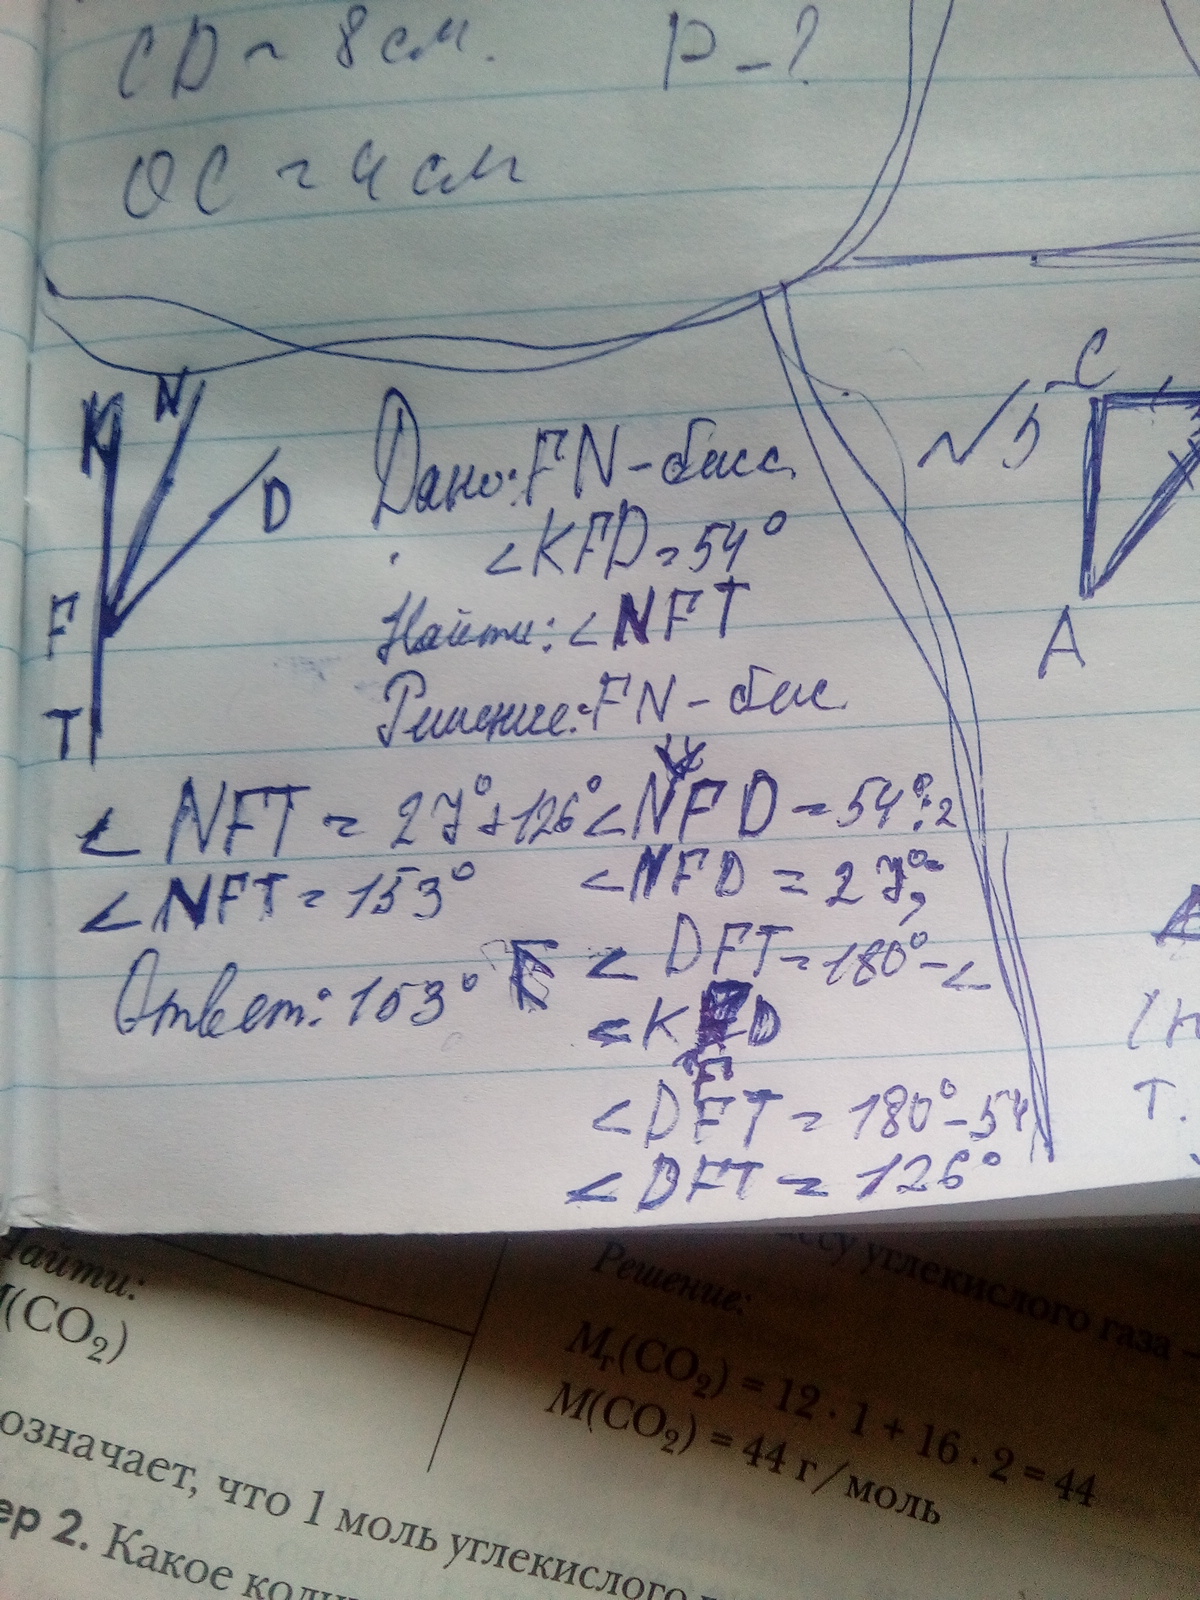 CD = 8 см. P - ?
OC = 4 см
K N
D
F
T
Дано: FN - бисс
<KFD = 54°
Найти: <NFT
Решение: FN - бис
<NFD = 54° : 2
<NFD = 27°
<DFT = 180° - <
<KFD
F
<DFT = 180° - 54
<DFT = 126°
<NFT = 27° + 126°
<NFT = 153°
Ответ: 153°
√5
C
A
Т.
Найти:
M(CO₂)
ссу углекислого газа –
Решение:
Mr(CO₂) = 12 · 1 + 16 · 2 = 44
M(CO₂) = 44 г/моль
означает, что 1 моль углекислого
ер 2. Какое